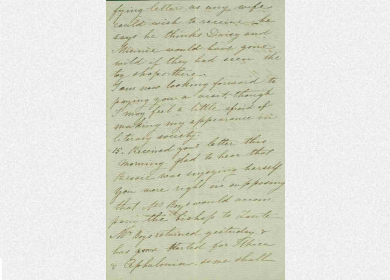 fying letter as any wife
could wish to receive. He
says he thinks Daisy and
Minnie would have gone
wild if they had seen the
big shops there.
I am now looking forward to
paying you a visit, though
I may feel a little afraid of
making my appearance in
literary society.
15. Received your letter this
morning glad to hear that
Bessie was enjoying herself
you were right in supposing
that Mr Boys would accom
pany the Bishop to Zante
Mr Boys returned yesterday &
has gone started for Ithica
& Cephalonia we shall